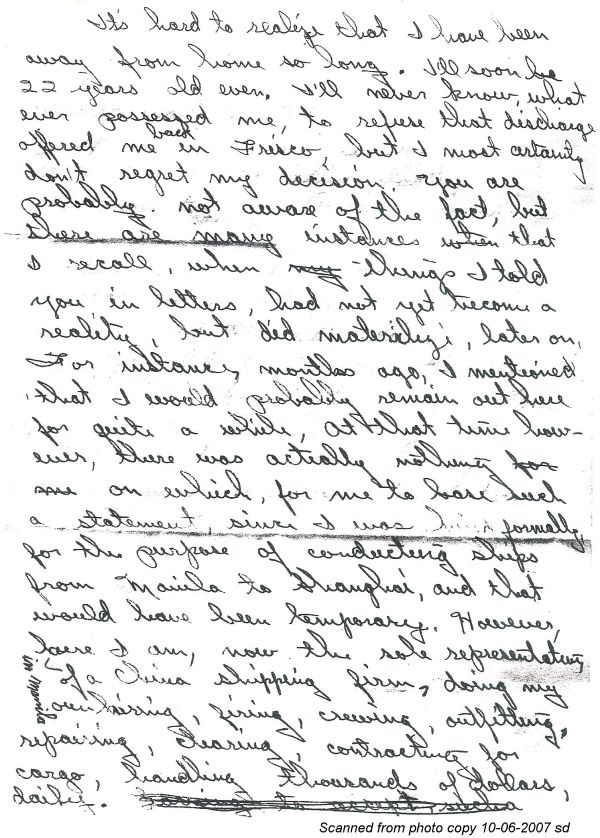 It's hard to realize that I have been
away from home so long. I'll soon be
22 years old even. I'll never know, what
ever possessed me, to refuse that discharge
offered me back in Frisco, but I most certainly
don't regret my decision. You are
probably not aware of the fact, but
there are many instances when that
I recall, when my things I told
you in letters, had not yet become a
reality, but did materilize, later on.
For instance, months ago, I mentioned
that I would probably remain out here
for quite a while, At that time how-
ever, there was actually nothing for
me on which, for me to base such
a statement, since I was formally
for the purpose of conducting ships
from Manila to Shanghai, and that
would have been temporary. However,
here I am, now the sole representative
in Manila
of a China shipping firm, doing my
own hiring, firing, crewing, outfitting,
repairing, clearing, contracting for
cargo, handling thousands of dollars,
daily.
Scanned from photo copy 10-06-2007 sd